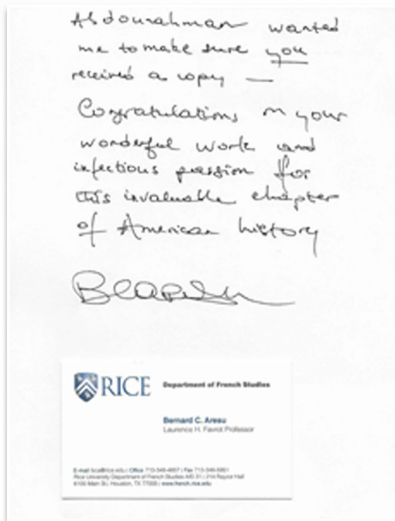 Abdourahman wanted
me to make sure you
received a copy —
Congratulations on your
wonderful work and
infectious passion for
this invaluable chapter
of American history
RICE
Department of French Studies
Bernard C. Aresu
Laurence H. Favrot Professor
E-mail bca@rice.edu / Office 713-348-4667 / Fax 713-348-5951
Rice University Department of French Studies MS 31 / 214 Rayzor Hall
6100 Main St. Houston, TX 77005 / www.french.rice.edu